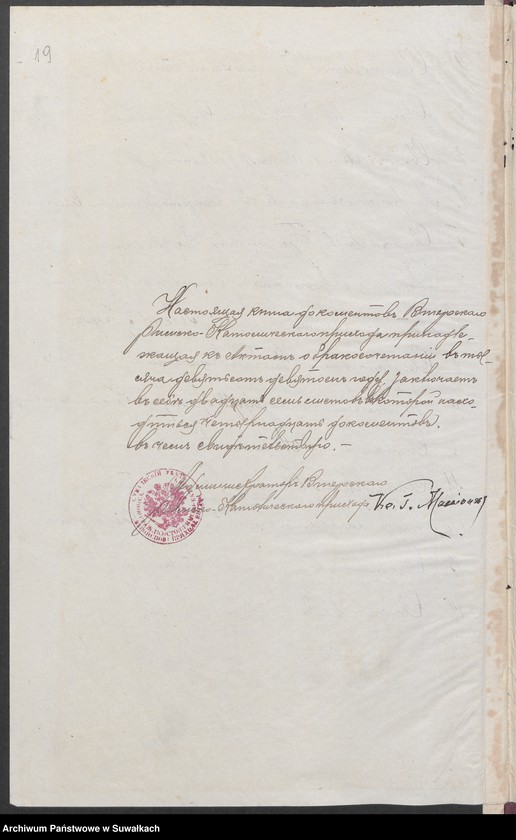 19
Настоящая книга документовъ В
Римско-Католическаго прихода принадле-
жащая къ актамъ о бракосочетаніи въ ты-
сяча девятьсотъ девятомъ году, заключаетъ
въ себѣ двадцать семь листовъ въ которой нахо-
дится четырнадцать документовъ,
въ чемъ свидѣтельствую. —
Администраторъ
Римско-Католическаго прихода
Archiwum Państwowe w Suwałkach